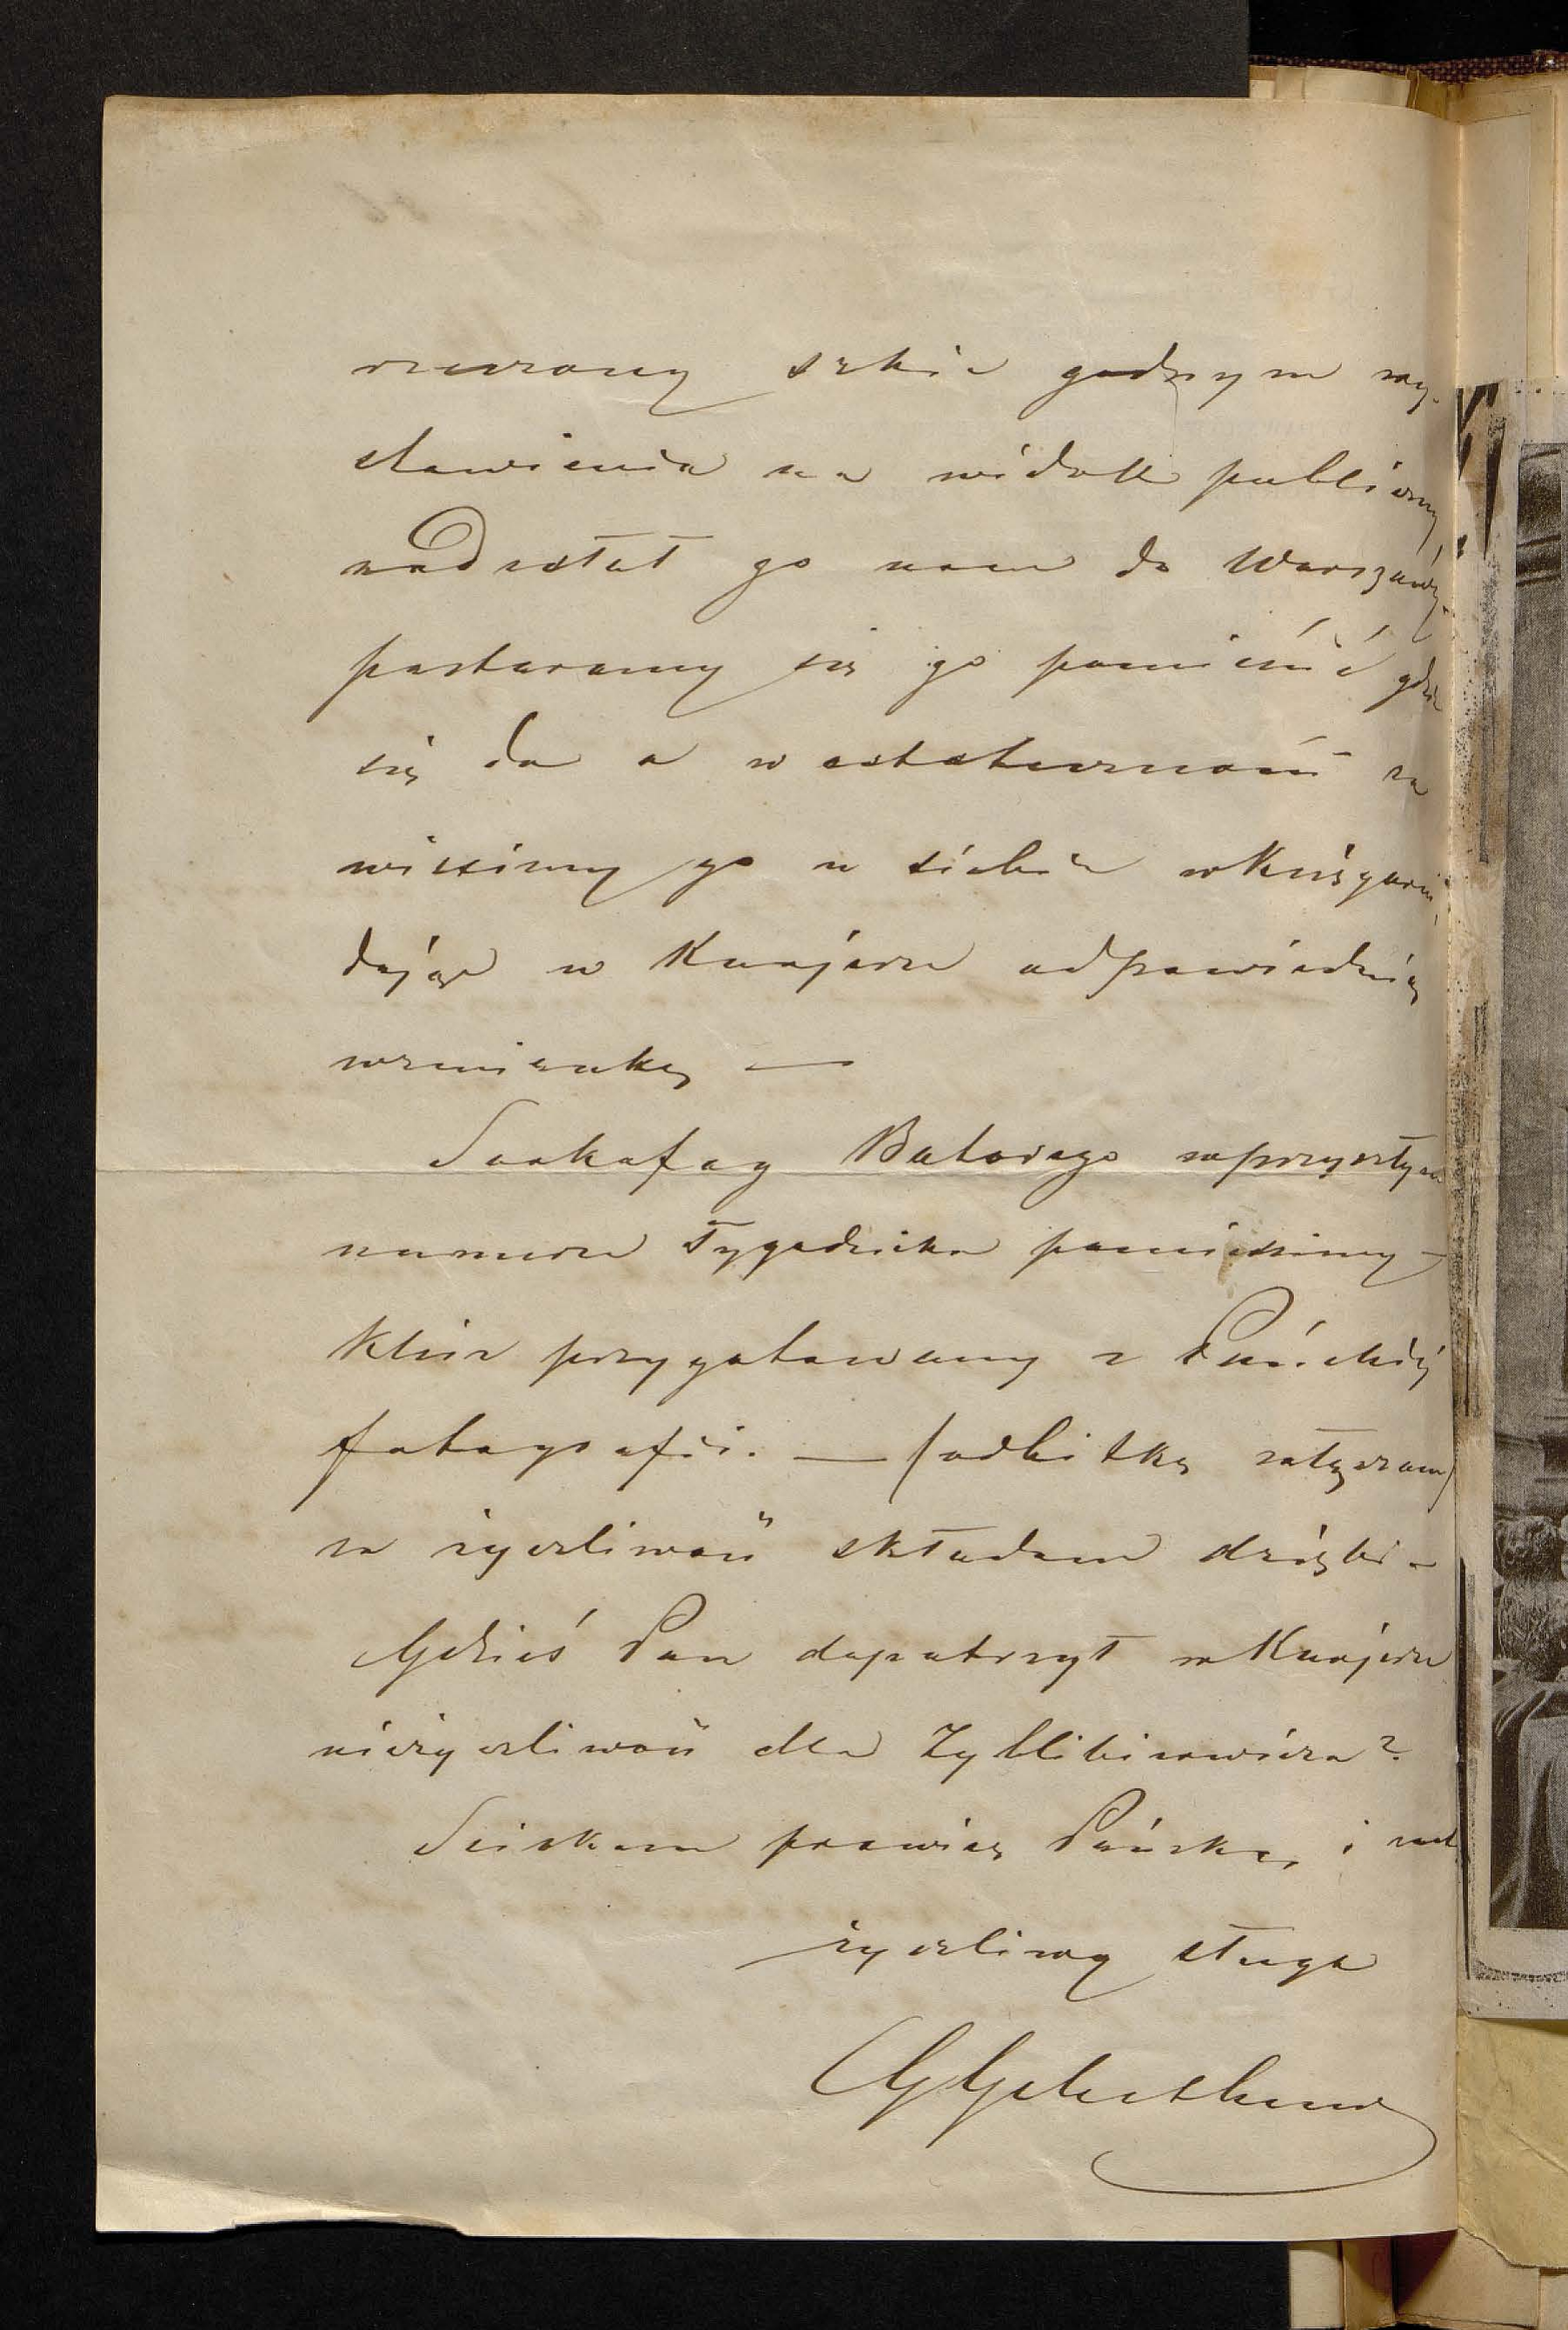 szony szkic godnym wy-
stawienia na widok publiczny,
nadesłał go nam do Warszawy.
postaramy się go pomieścić gdzie
się da a w ostateczności za
wiesimy go u siebie w Księgarni,
dając w Kurjerze odpowiednią
wzmiankę —
Sarkofag Batorego w przyszłym
numerze Tygodnika pomieścimy —
klisz przygotowany z Pańskiéj
fotografii. — (odbitkę załączam)
za życzliwość składam dzięki —
Gdzieś Pan dopatrzył w Kurjerze
nieżyczliwość dla Zyblikiewicza?
Ściskam prawicę Pańską i
życzliwy sługa
GGebethner